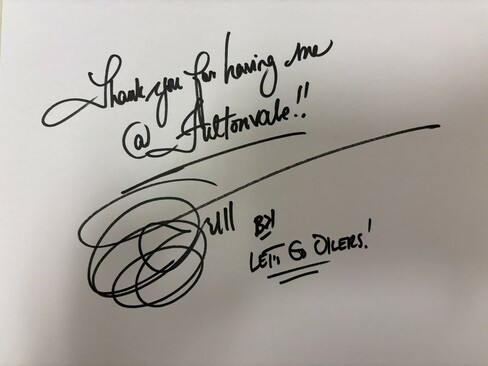 Thank you for having me
@ Fultonvale!!
BK
LET'S GO OILERS!